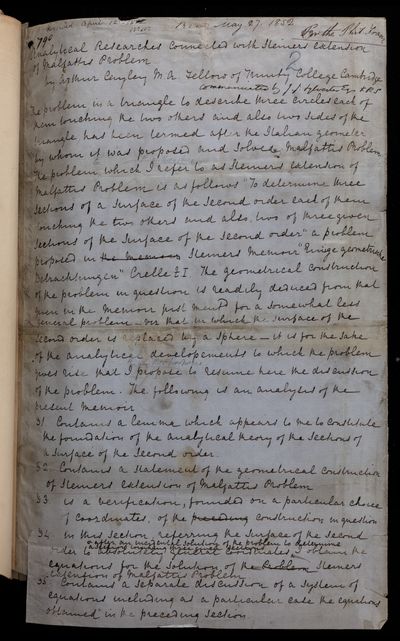 Received April 12
Read May 27. 1852
For the Phil. Trans.
790
2
Analytical Researches connected with Steiners extension
of Malfattis Problem
by Arthur Cayley M. A. Fellow of Trinity College Cambridge
Communicated by J J Sylvester Esq FRS
The problem in a triangle to describe three circles each of
them touching the two others and also two sides of the
triangle has been termed after the Italian geometer
by whom it was proposed and solved Malfattis Problem
The problem which I refer to as Steiners extension of
Malfattis Problem is as follows "To determine three
sections of a surface of the second order each of them
touching the two others and also two of three given
sections of the surface of the second order" a problem
proposed in Steiners Memoir "Einige geometrische
Betrachtungen" Crelle t I. The geometrical construction
of the problem in question is readily deduced from that
given in the memoir just ment^d for a somewhat less
general problem viz that in which the surface of the
second order is replaced by a sphere - it is for the sake
of the analytical developements to which the problem
gives rise that I propose to resume here the discussion
of the problem. The following is an analysis of the
present Memoir
§1 Contains a lemma which appears to me to constitute
the foundation of the analytical theory of the sections of
a surface of the second order.
§2 Contains a statement of the geometrical construction
of Steiners extension of Malfattis Problem
§3 is a verification, founded on a particular choice
of coordinates, of the preceding construction in question
§4 in this section, referring the surface of the second
order to absolutely general coordinates, I obtain the
after an incidental solution of the problem to determine
equations for the solution of the Problem Steiners
extension of Malfattis Problem
§5 Contains a separate discussion of a system of
equations including as a particular case the equations
obtained in the preceding section.